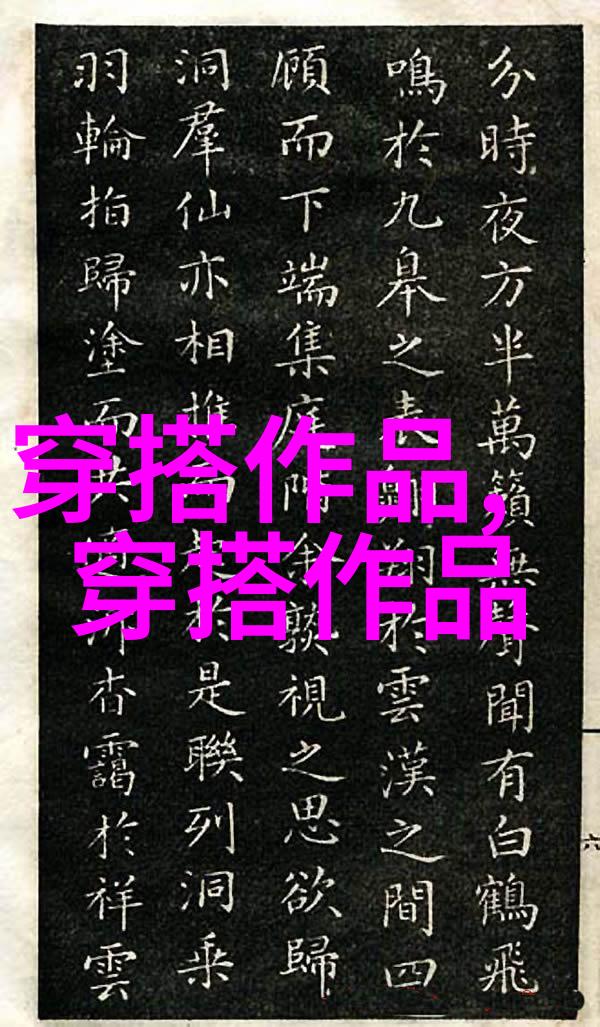 穿搭作品,
穿搭作品
分時夜方半萬籟無聲聞有白鶴飛
鳴於九皋之表翺翔於雲漢之間四
顧而下端集庭隅余熟視之思欲歸
洞羣仙亦相推於是聯列洞乘
羽輪指歸塗而杳靄於祥雲
六